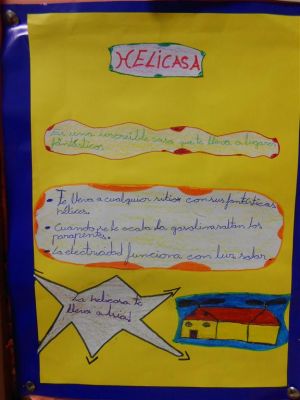 HELICASA
Es una increíble casa que te lleva a lugares
fantásticos
• Te lleva a cualquier sitio con sus fantásticas
hélices.
• Cuando se te acaba la gasolina saltan los
parapentes.
• La electricidad funciona con luz solar.
La helicasa te
lleva a